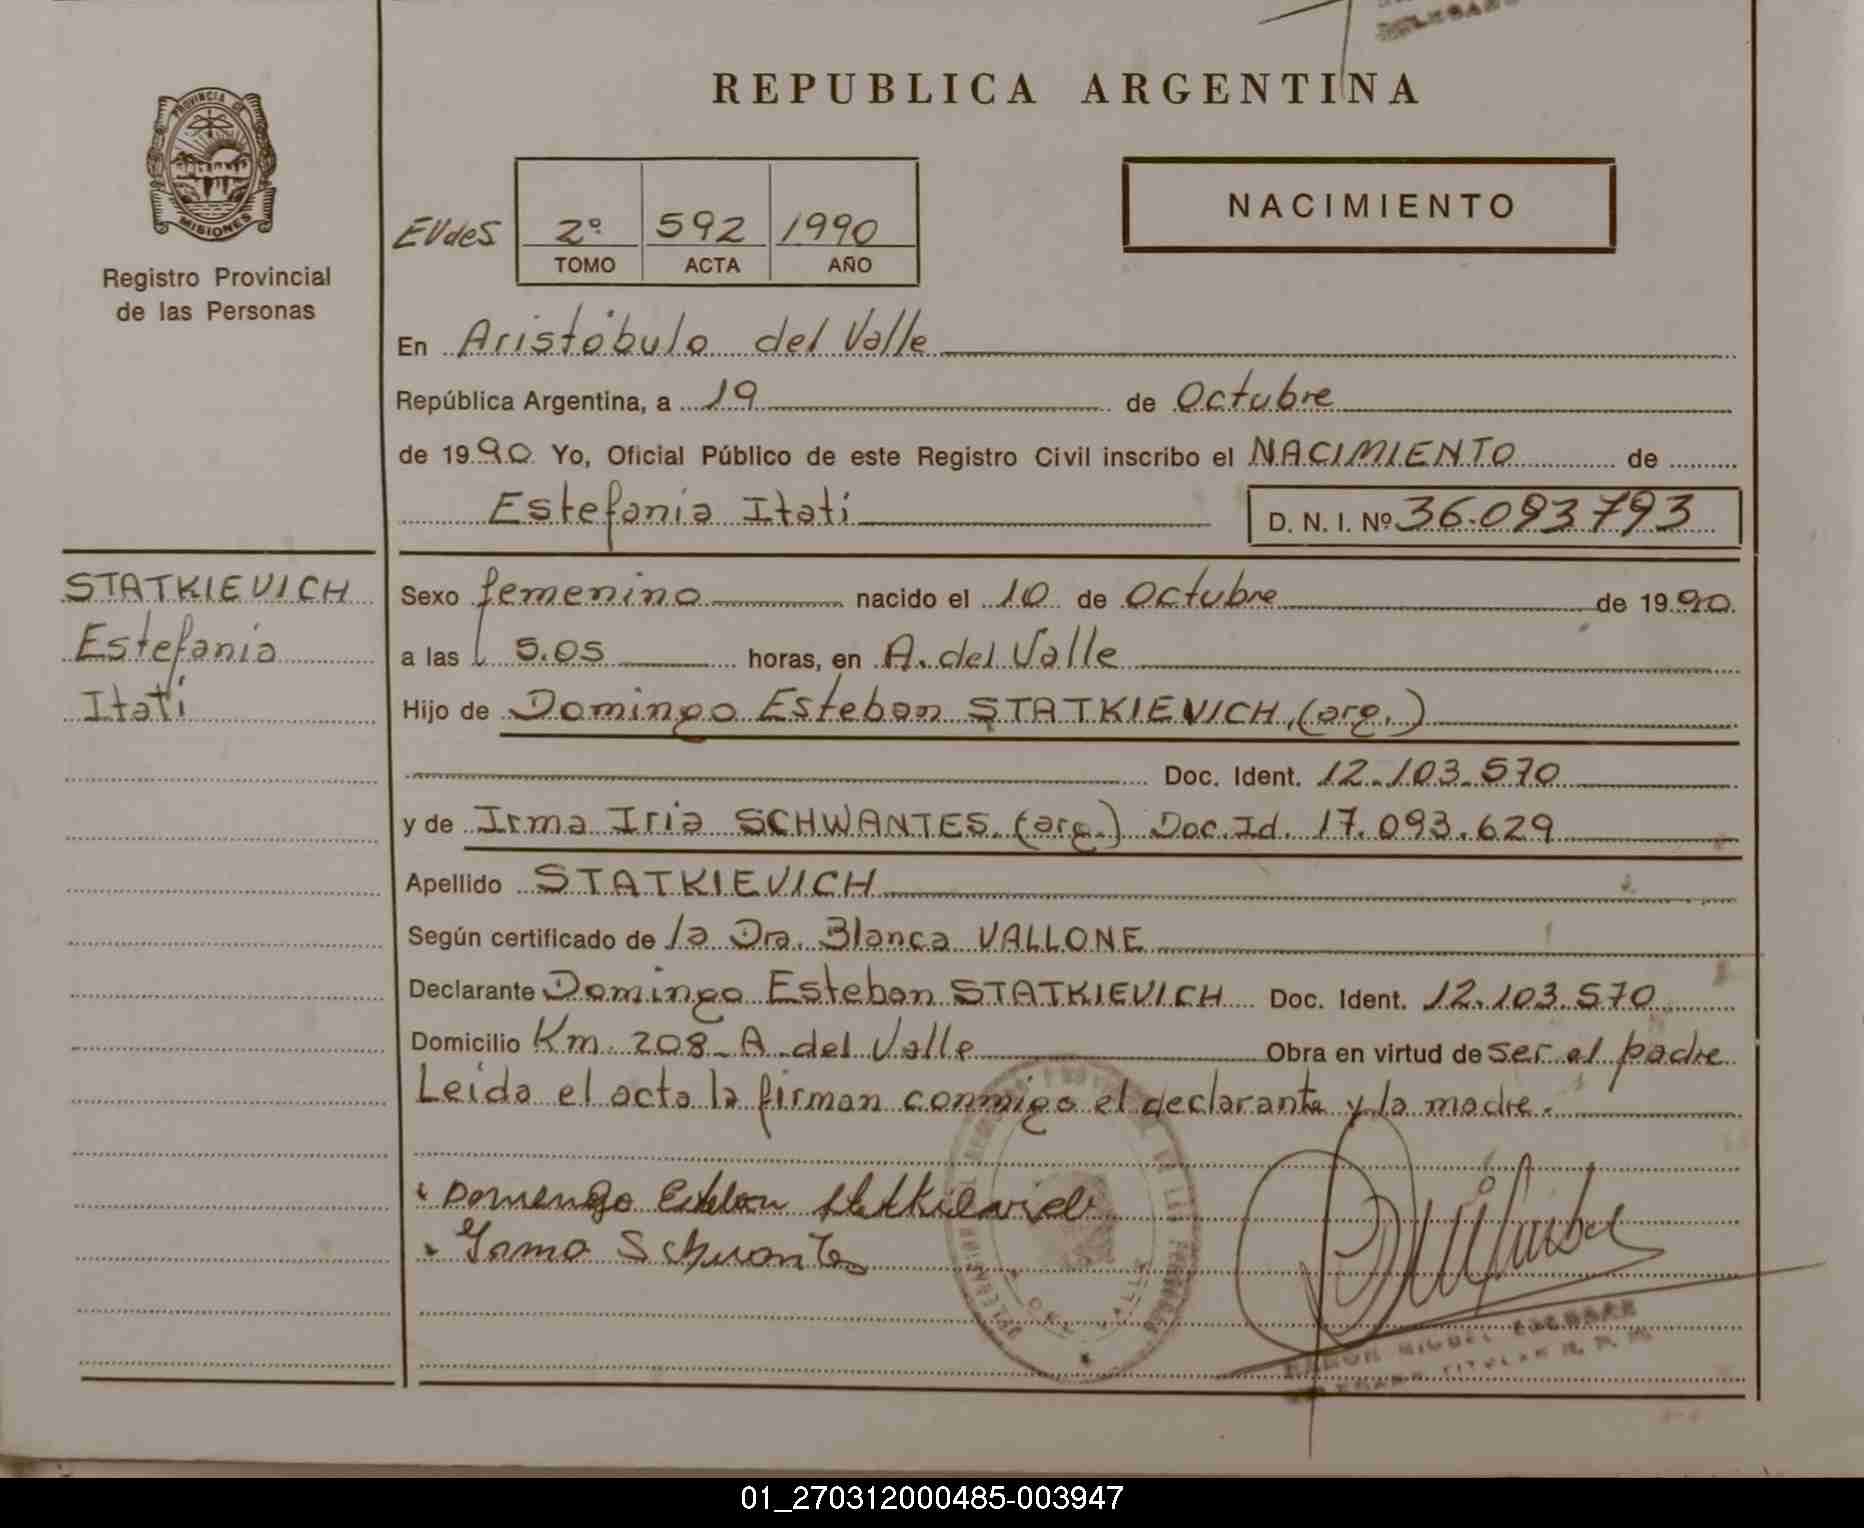 REPUBLICA ARGENTINA
PROVINCIA DE
MISIONES
Registro Provincial
de las Personas
EVdeS 2º 592 1990
TOMO ACTA AÑO
NACIMIENTO
En Aristóbulo del Valle
República Argentina, a 19 de Octubre
de 1990 Yo, Oficial Público de este Registro Civil inscribo el NACIMIENTO de
Estefania Itati D. N. I. Nº 36.093793
STATKIEVICH
Estefania
Itati
Sexo femenino nacido el 10 de Octubre de 1990
a las 5.05 horas, en A. del Valle
Hijo de Domingo Esteban STATKIEVICH (arg.)
Doc. Ident. 12.103.570
y de Irma Iria SCHWANTES (arg.) Doc. Id. 17.093.629
Apellido STATKIEVICH
Según certificado de la Dra. Blanca VALLONE
Declarante Domingo Esteban STATKIEVICH Doc. Ident. 12.103.570
Domicilio Km. 208 A. del Valle Obra en virtud de ser el padre
Leida el acta la firman conmigo el declarante y la madre.
Domengo Esteban
Irma Schwantes
RAMON MIGUEL
01_270312000485-003947